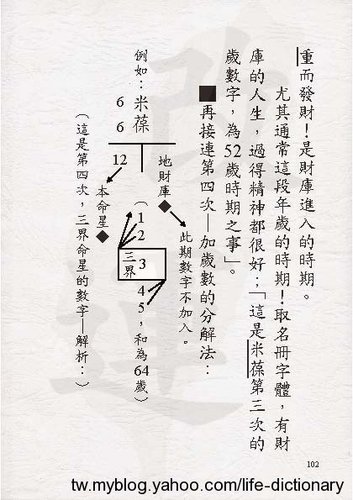 重而發財!是財庫進入的時期。
尤其通常這段年歲的時期!取名冊字體,有財
庫的人生,過得精神都很好;「這是米葆第三次的
歲數字,為52歲時期之事」。
■再接連第四次—加歲數的分解法:
例如:米葆
6 6
12
本命星◆
地財庫◆
此期數字不加入。
(1 2
三界 3
4 5,和為64歲)
(這是第四次,三界命星的數字—解析:)
102
tw.myblog.yahoo.com/life-dictionary